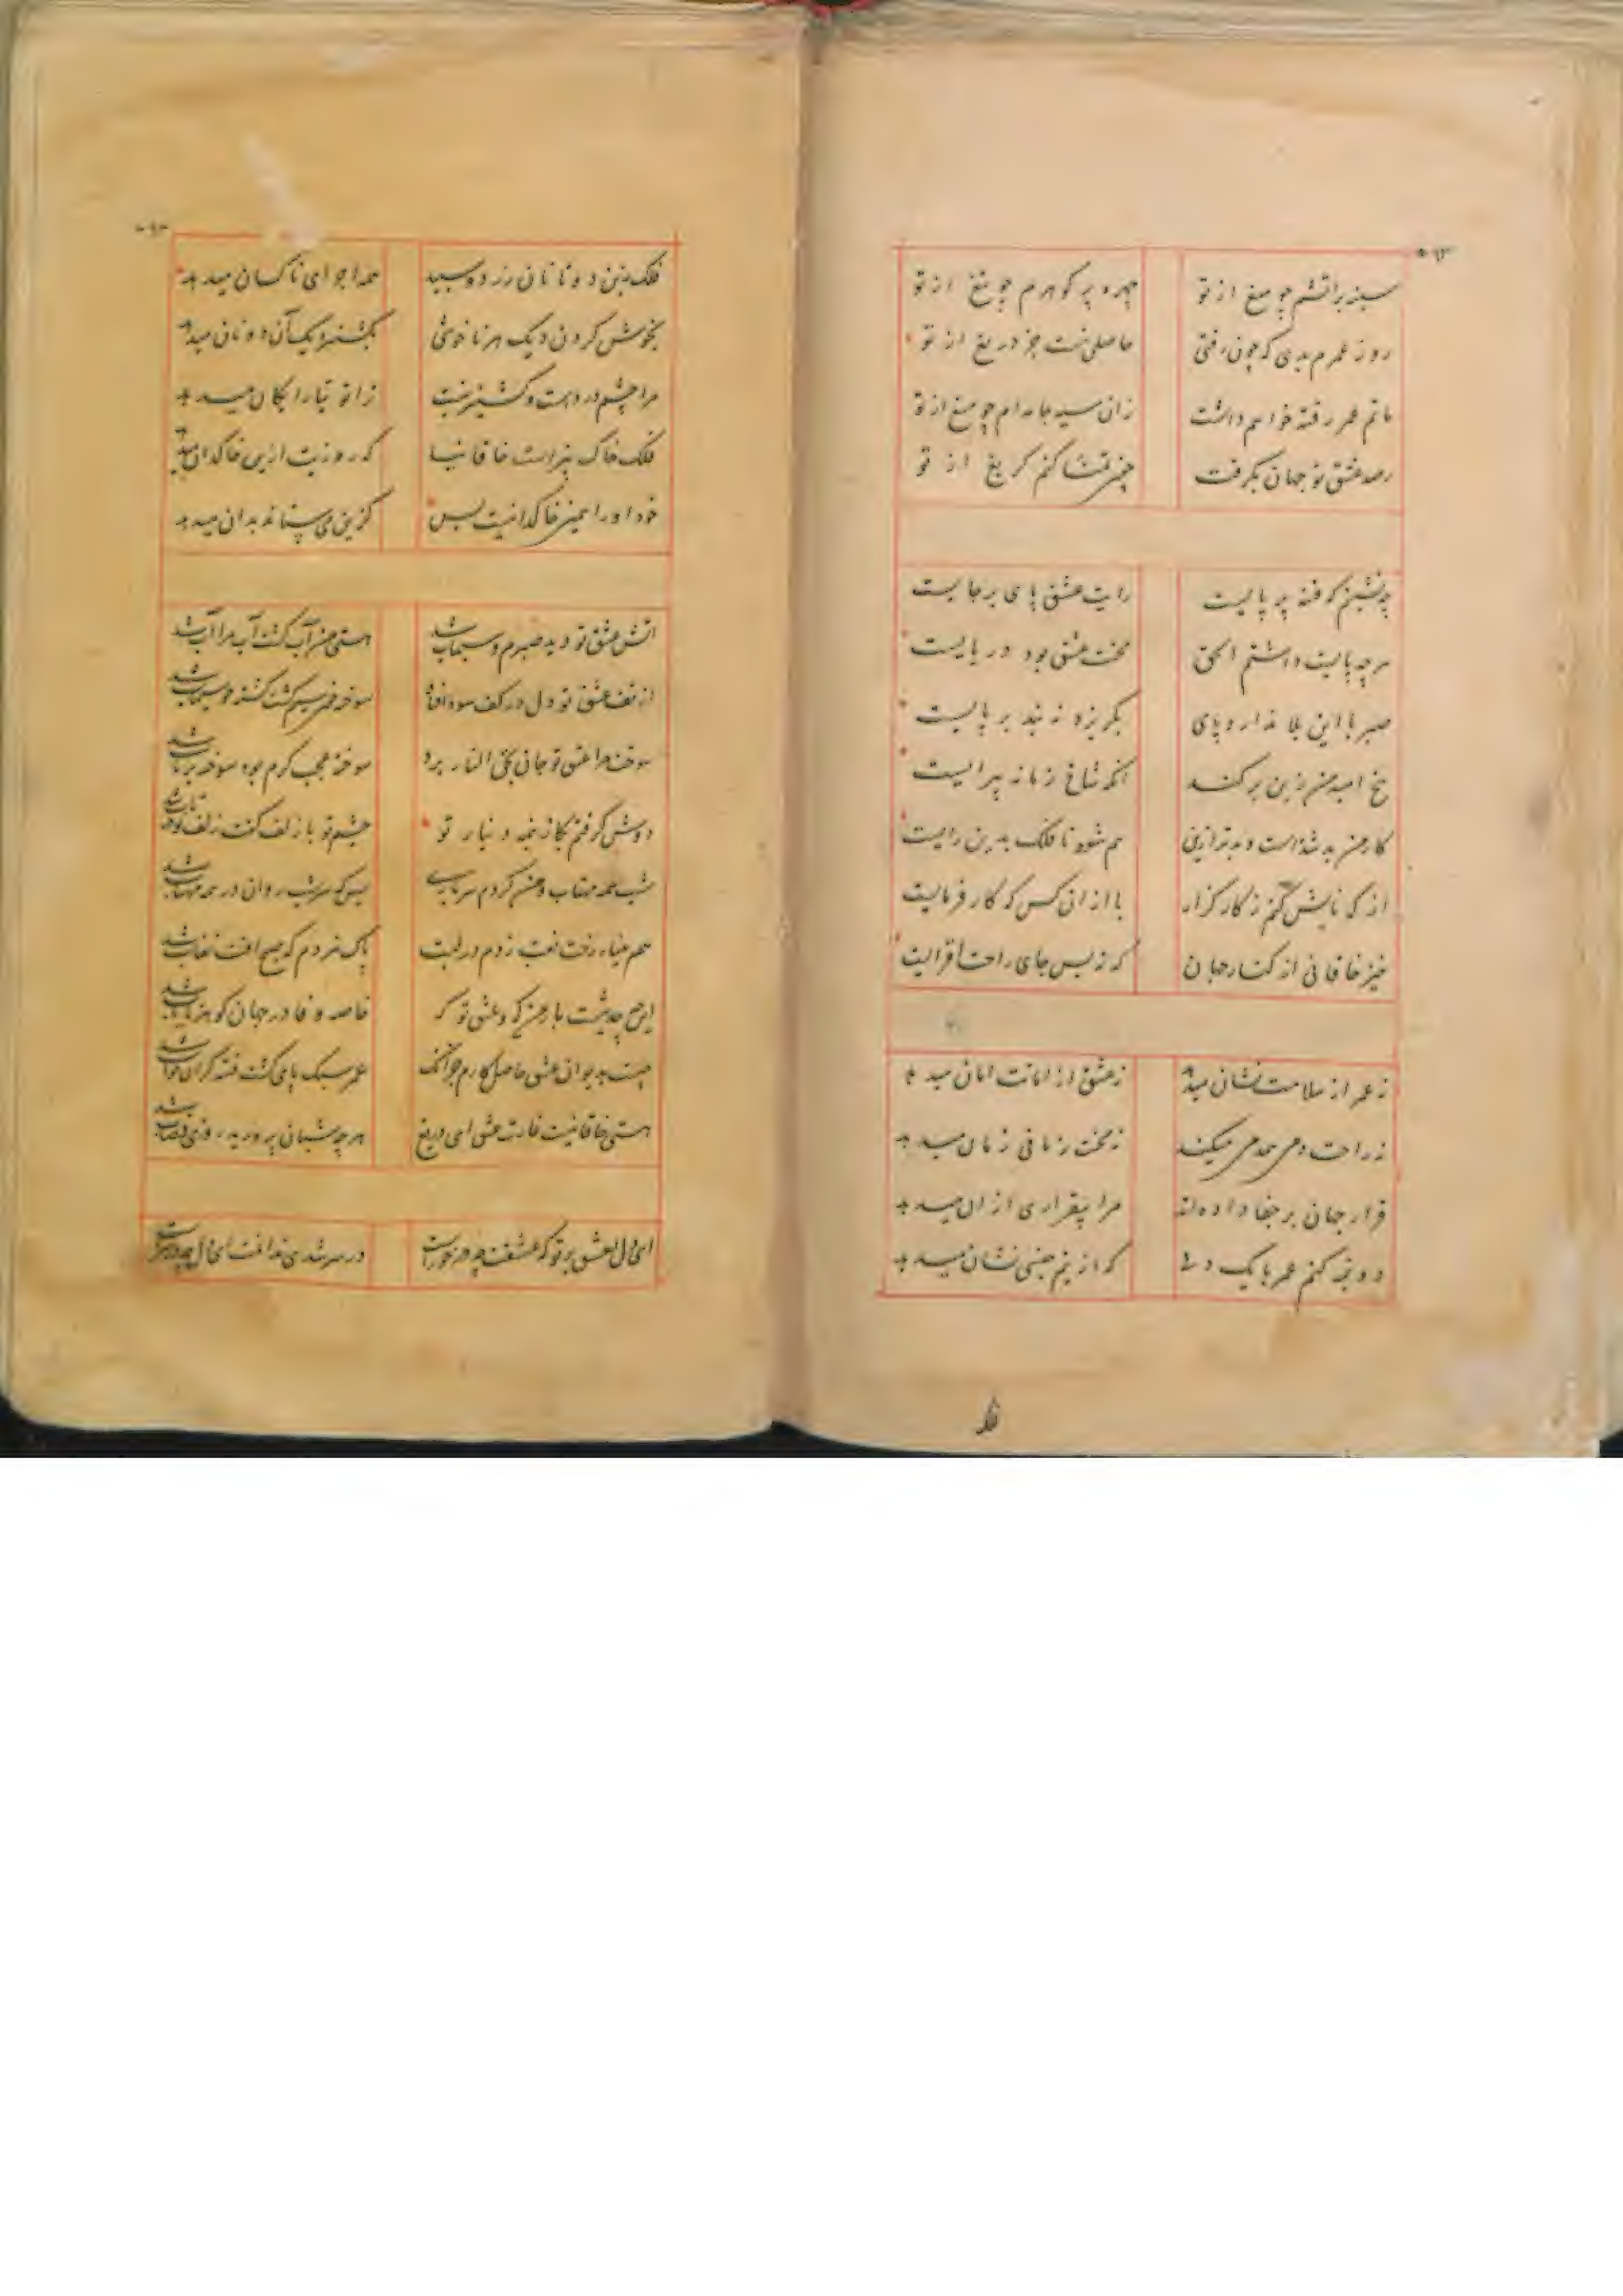 سینه پر آتشم چو میغ از تو    چهره پر گوهرم چو تیغ از تو
روز عمرم بدی که چون رفتی    حاصلی نیست جز دریغ از تو
ماتم عمر رفته خواهم داشت    زان سیه جامه‌ام چو میغ از تو
عشق تو جهان بگرفت    گریغ از تو
چه نشینم که فتنه بر پایست    رایت عشق پای برجایست
هرچه بایست داشتم الحق    محنت عشق بود دربایست
صبر با این بلا ندارد پای    بگریزد نه بند بر پایست
بیخ امید من ز بن برکند    آنکه شاخ زمانه پیرایست
کار من بد شد است و بدتر ازین    هم شود تا فلک بدین رایست
از که نالش کنم ز کارگزار    یا از آن کس که کارفرمایست
خیز خاقانی از کنار جهان    که نه بس جای راحت‌افزایست
نه عمر از سلامت نشان میدهد    نه عشق از امانت امان میدهد
نه راحت دمی همدمی میکند    نه محنت زمانی زمان میدهد
قرار جهان بر جفا داده‌اند    مرا بیقراری از آن میدهد
کنم عمر با یک دلی    که از نیم جنسی نشان میدهد
فلک بین دو تا نان زرد و سپید    همه اجرای ناکسان میدهد
بخوش کردن دیک هر ناخوشی    بگشنیز دیگ آن دو نان میدهد
مرا چشم درد است و گشنیز نیست    رایگان میدهد
فلک خاک بیز است خاقانیا    که روزیت ازین خاکدان میدهد
خود او را همین خاکدانیست بس    کزین می‌ستاند بدان میدهد
آتش عشق تو دید صبرم و سیماب شد    هستی من آب گشت آب مرا آب شد
از تف عشق تو دل در کف سودا فتاد    سوخته چون سیم گشت کشته چو سیماب شد
سوخت مرا عشق تو جان بحق النار برد    سوخته عجب کرم بود سوخته برتاب شد
دوش گرفتم بگاز نیمه دینار تو    چشم تو با زلف گفت زلف تو در تاب شد
شب همه مهتاب و من کردم سربازیی    بس که سر شب روان در سر مهتاب شد
هم بپناه رخت نقب زدم در لبت    باک نبردم که صبح آفت نقاب شد
این همه چه بست باز من که و عشق تو که    خاصه وفا در جهان گوهر نایاب شد
چیست بدیوان عشق حاصل کارم جز آنک    عمر سبک پای گشت فتنه گران خواب شد
هستی خاقانیست غارت عشق ای دریغ    هرچه شبان پرورید روزی قصاب شد
ای دل بعشق بر تو که عشقت چه درخورست    در سر شدی ندانمت ای دل چه در سرست